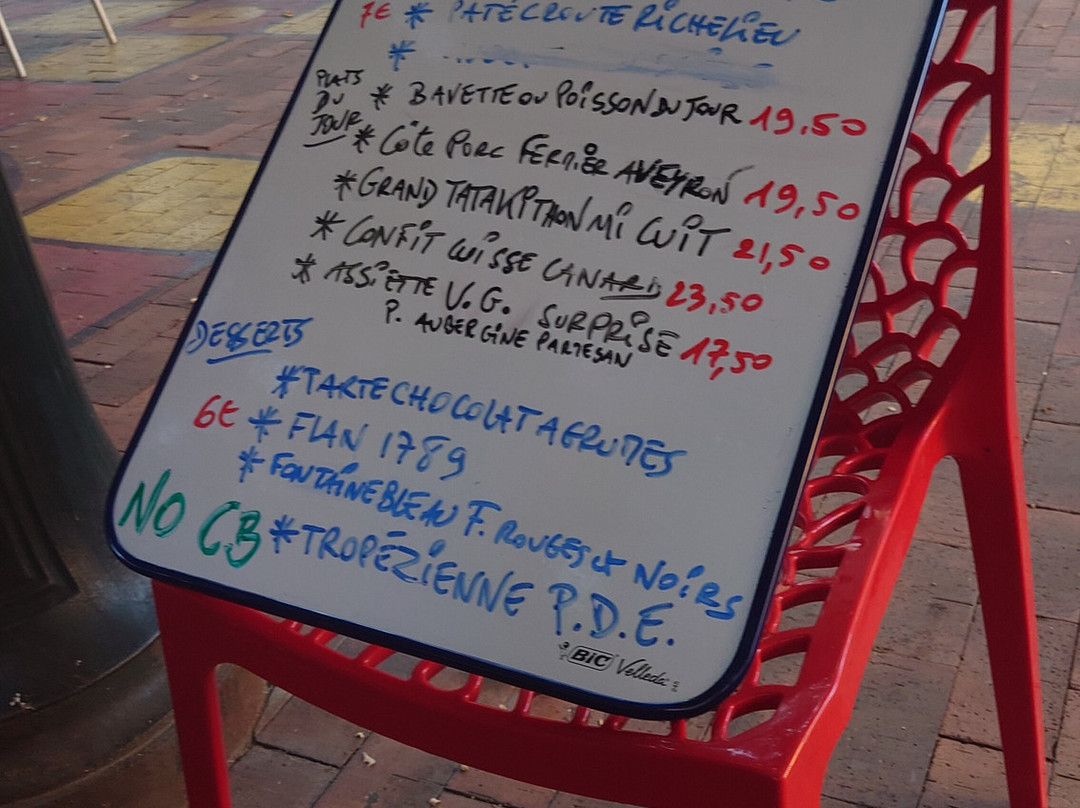 7€ * PATÉ CROUTE RICHELIEU
*
PLATS DU JOUR
* BAVETTE OU POISSON DU JOUR 19,50
* Côte PORC FERMIER AVEYRON 19,50
* GRAND TATAKI THON MI CUIT 21,50
* CONFIT CUISSE CANARD 23,50
* ASSIETTE V.G. SURPRISE 17,50
P. AUBERGINE PARMESAN
DESSERTS
* TARTE CHOCOLAT AGRUMES
6€ * FLAN 1789
* FONTAINEBLEAU F. ROUGES & NOIRS
NO CB * TROPÉZIENNE P.D.E.
BIC Velleda